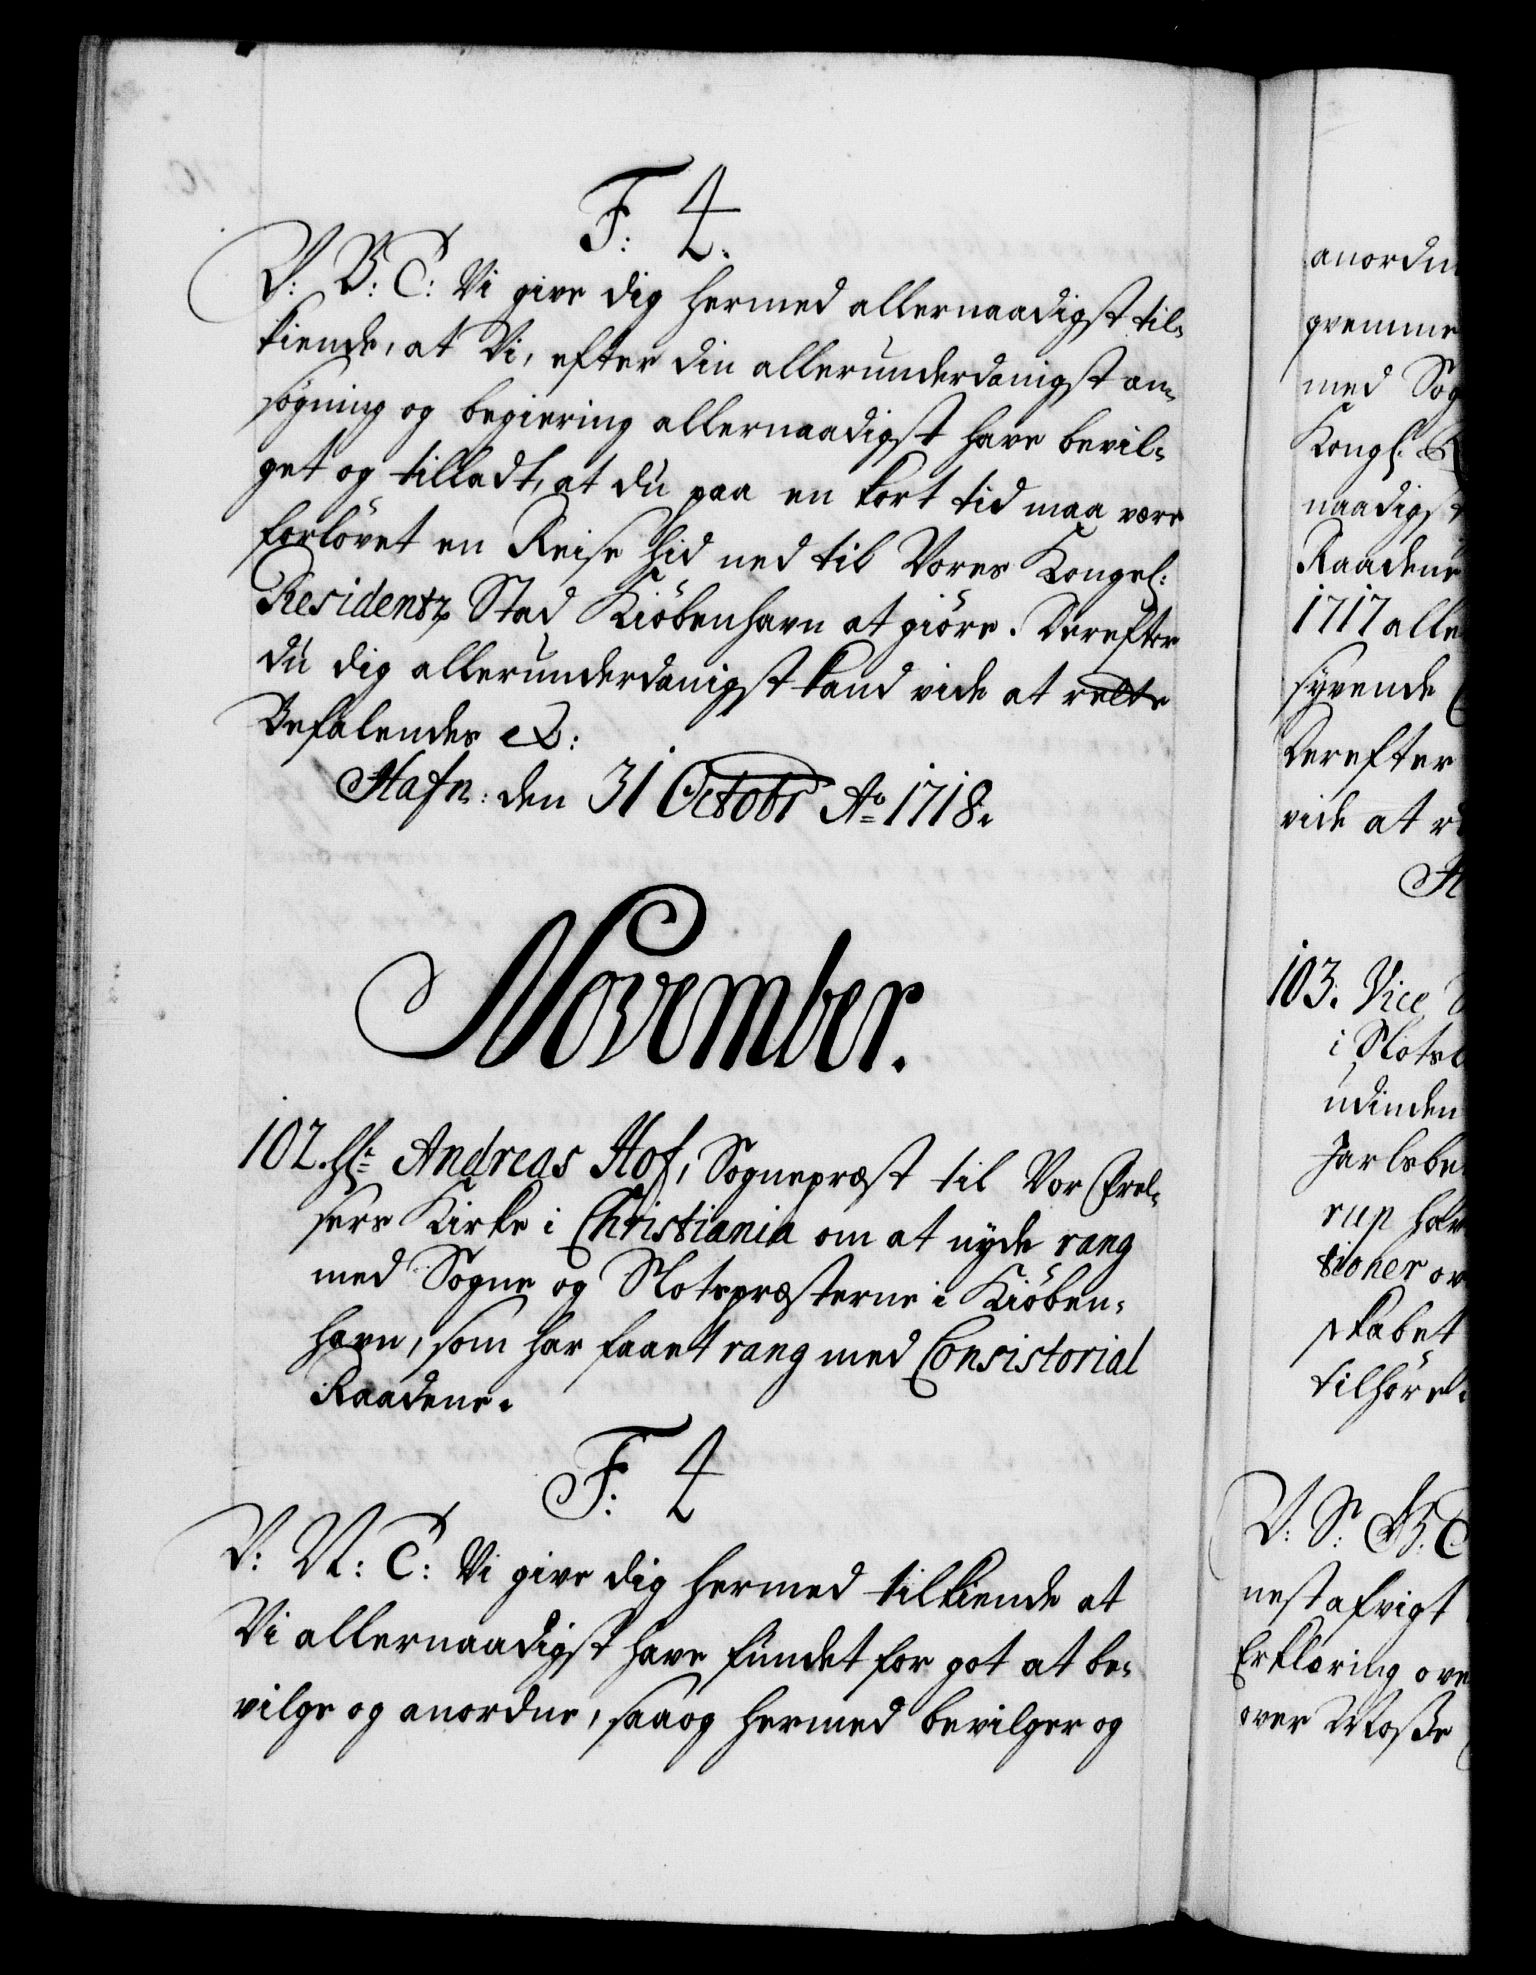 F: 4.
V: B: T: Vi give dig hermed allernaadigst til-
kiende, at Vi, efter din allerunderdanigst an-
søgning og begiering allernaadigst have bevil-
get og tilladt, at du paa en kort tid maa være
forlövet en Reise hid ned til Vores Kongel:
Residentz Stad Kiöbenhavn at giöre. Derefter
du dig allerunderdanigst kand vide at rette
Befalendes etc:
Hafn: den 31 Octobr Ao 1718.
November.
102. Hr Andreas Hof, Sognepræst til Vor Frel-
sers Kirke i Christiania om at nyde rang
med Sogne og Slotspræsterne i Kiöben-
havn, som har faaet rang med Consistorial
Raadene.
F: 4
V: N: T: Vi give dig hermed tilkiende at
Vi allernaadigst have fundet for got at be-
vilge og anordne, saa og hermed bevilger og
anordn
gremme
med Sog
Kongl:
naadigst
Raadene
1717 alle
syvende
Derefter
vide at r
H
103. Vice
i Slots
udinden
Jarlsbe
rup hav
tioner ov
skabet
tilhörel
V: S: B: T
nest afvigt
Erklæring ove
over Mosse